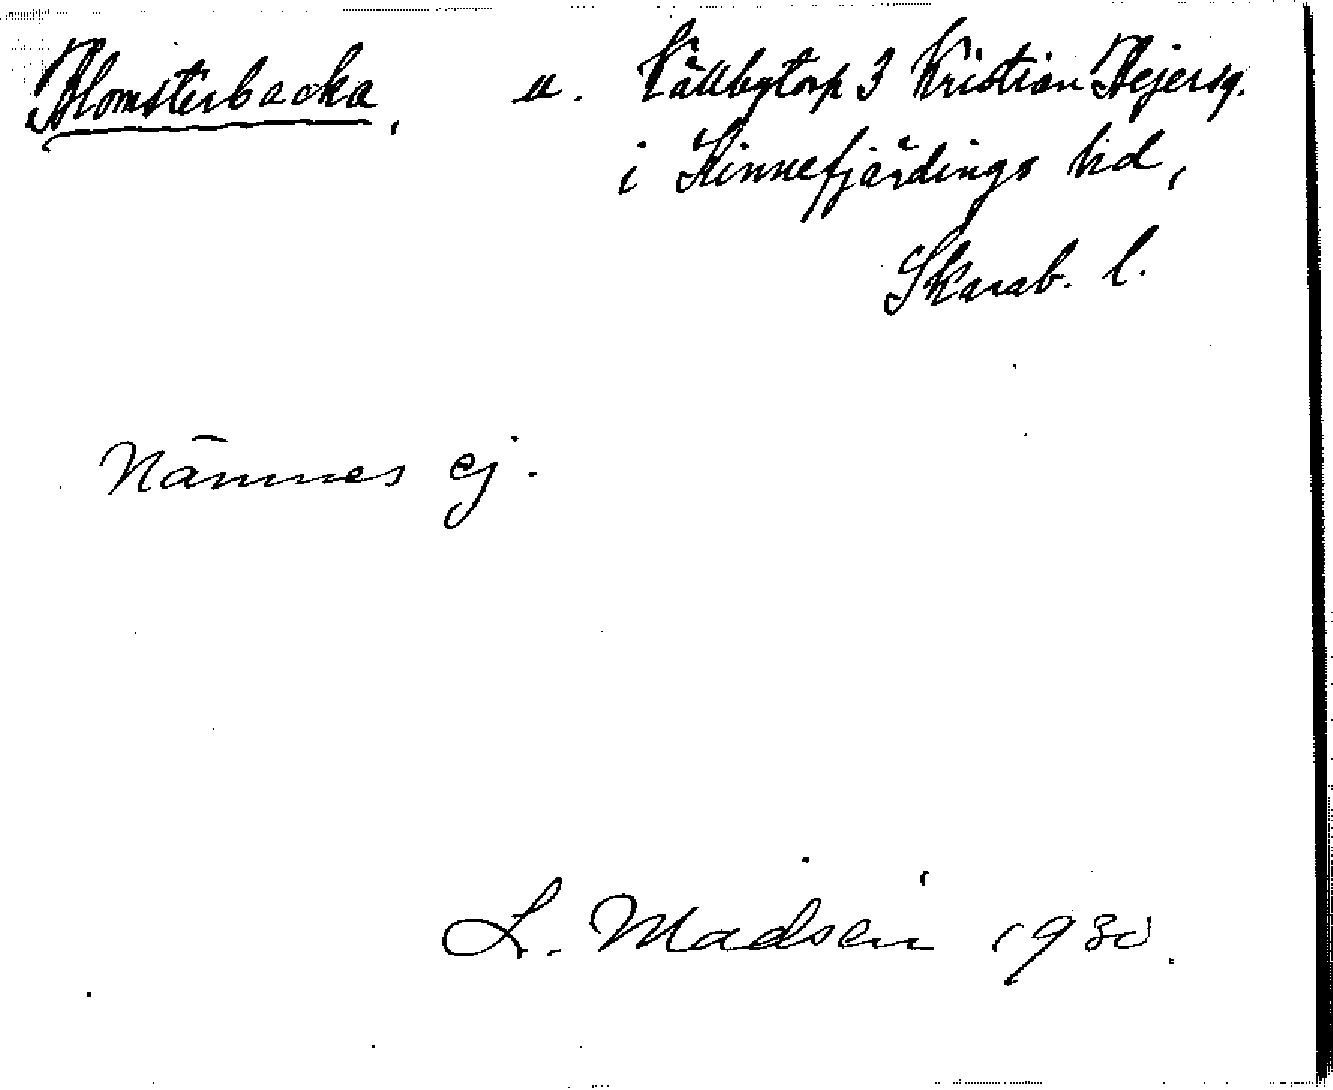 Blomsterbacka, u. Källbytorp 3 Kristian Mejersg.
i Kinnefjärdings hd,
Skarab. l.
Nämnes ej.
L. Madsén 1930.